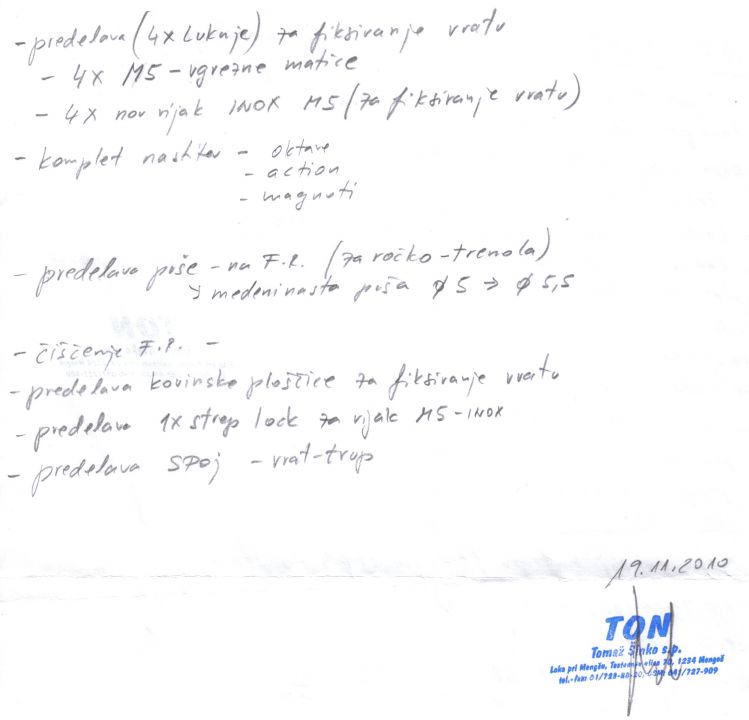 - predelava (4x Luknje) za fiksiranje vratu
- 4x M5 - vgrezne matice
- 4x nov vijak INOX M5 (za fiksiranje vratu)
- komplet nastitev - oktave
- action
- magneti
- predelava puše - na F.R. (za ročko - tremola)
↳ medeninasta puša ø 5 → ø 5,5
- čiščenje F.R. -
- predelava kovinske ploščice za fiksiranje vratu
- predelava 1x strep lock za vijak M5 - INOX
- predelava SPOj - vrat-trup
19.11.2010
TON
Tomaž s.p.
Loka pri Mengšu, 20, 1234 Mengeš
tel.-fax: 01/723-80-20, GSM: 041/727-909